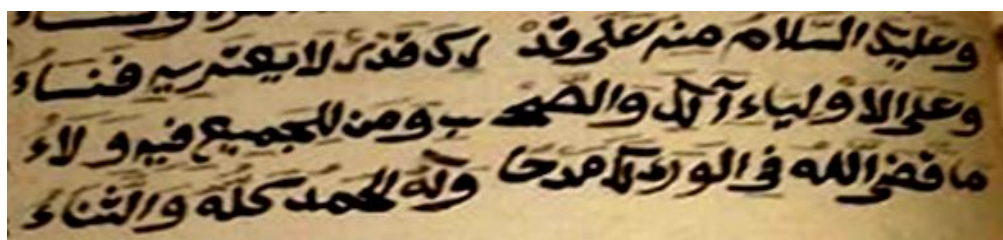 وعليك السلام منه على قد رك قدر لا يعتريه فناء
وعلى الاولياء آلك والصحـ ـب ومن للجميع فيه ولاء
ما قضى الله في الورى لك مدحا وله الحمد كله والثناء